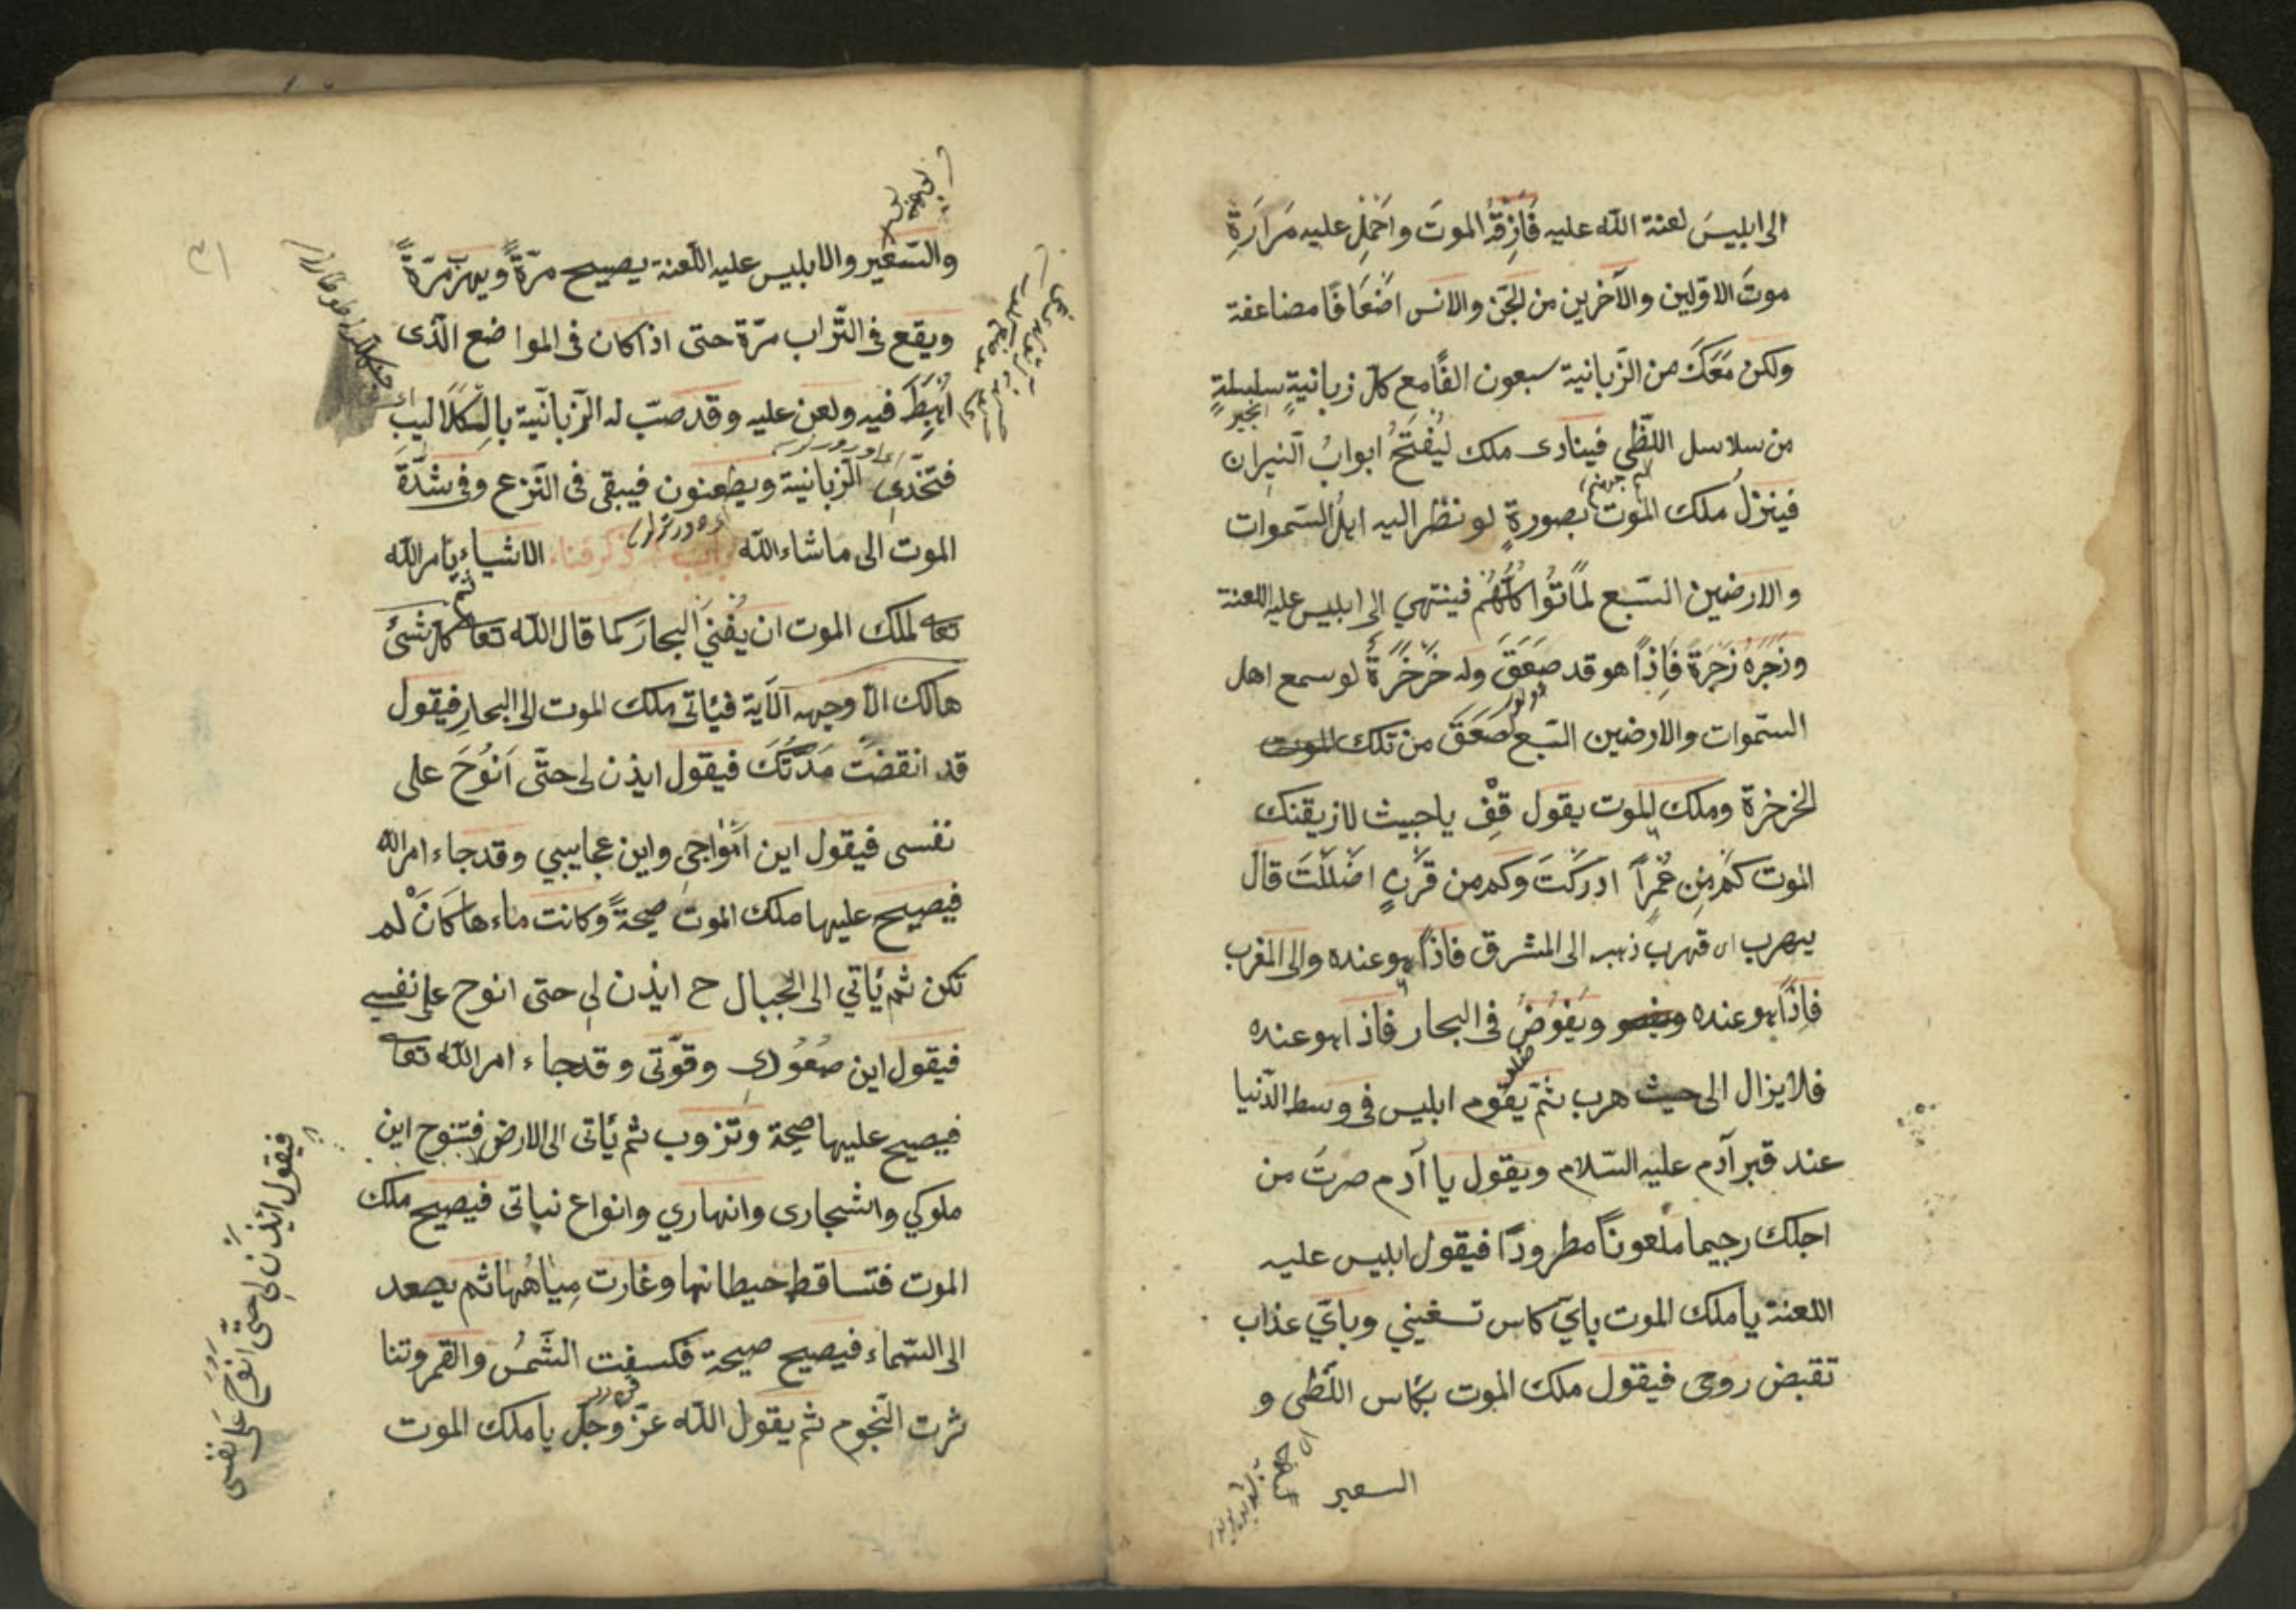 الى ابليسَ لعنة الله عليه فَازِقْهُ الموتَ واحْمِلْ عليه مَرَارَةِ
موتَ الاوّلين والآخرين من الجّن والانس اضْعَافًا مضاعفة
ولكن مَعَكَ من الزّبانية سبعون الفًا مع كل زبانيةٍ سلسلةٍ
من سلاسل اللظّى فينادى ملك لِيُفْتَحُ ابوابُ النّيران
فينزلُ ملك الموت بصورةٍ لو نظر اليه اهلُ السّموات
والارضين السّبع لمَاتُوا كلّهُم فينتهي الى ابليس عليه اللعنة
وزَجَرَهُ زَجْرَةً فاِذًا هو قد صَعَقَ وله خَرْخَرَةً لو سمع اهل
السّموات والارضين السّبع لصَعَقَ من تلك الموت
الخرخرة وملك الموت يقول قِفْ ياخبيث لازيقنك
الموت كم مِن عُمْرٍاً ادركْتَ وكم من قَرْنٍ اضْلَلْتَ قال
يهرب اى قهرب ذهب الى المشرق فاذاً هو عنده والى المغرب
فاِذًا هو عنده ويَغُوضُ فى البحار فاذا هو عنده
فلا يزال الى حيث هرب ثمّ يقوم ابليس فى وسط الدّنيا
عند قبر آدم عليه السّلام ويقول يا آدم صرتُ من
اجلك رجيما ملعونًا مطرودًا فيقول ابليس عليه
اللعنة يا ملك الموت بايّ كاس تسغيني وبايّ عذاب
تقبض روحى فيقول ملك الموت بكاس اللّظى و
السعير
والسّعير والابليس عليه اللّعنة يصيح مرّةً ويهرب مرّةً
ويقع فى التّراب مرّة حتى اذا كان فى المواضع الّذى
اُهْبِطَ فيه ولعن عليه وقد صبّ له الزّبانّية بالكَلاليبِ
فتخدى الزّبانية ويطعنون فيبقى فى النّزع وفى شدّة
الموت الى ماشاء الله باب ذكر فناء الاشياء يامر الله
تعا لملك الموت ان يُفْنِيَ البحارَ كما قال الله تعا كل شئ
هالك الاّ وجهه الآية فيَأتى ملك الموت الى البحارِ فيقول
قد انقضت مَدّتُكَ فيقول ايذن لى حتّى اَنُوحَ على
نفسى فيقول اين اَمْواجى واين عجايبي وقد جاء امر الله
فيصيح عليها ملك الموت صيحةً وكانت ماءها كَانْ لم
تكن ثم يَأتي الى الجبال ح ايذن لى حتى انوح على نفسي
فيقول اين صُعُودى وقوّتى وقد جاء امر الله تعا
فيصيح عليها صيحة وتزوب ثم يَأتى الى الارض فتنوح اين
ملوكي واشجارى وانهاري وانواع نباتى فيصيح ملك
الموت فتساقط حيطانها وغارت مِياهُها ثم يصعد
الى السّماء فيصيح صيحة فكسفت الشّمسُ والقمر وتنا
ثرت النّجوم ثم يقول الله عزّ وجلّ يا ملك الموت
فيقول ائيذن لى حتّى انوح على نفسى